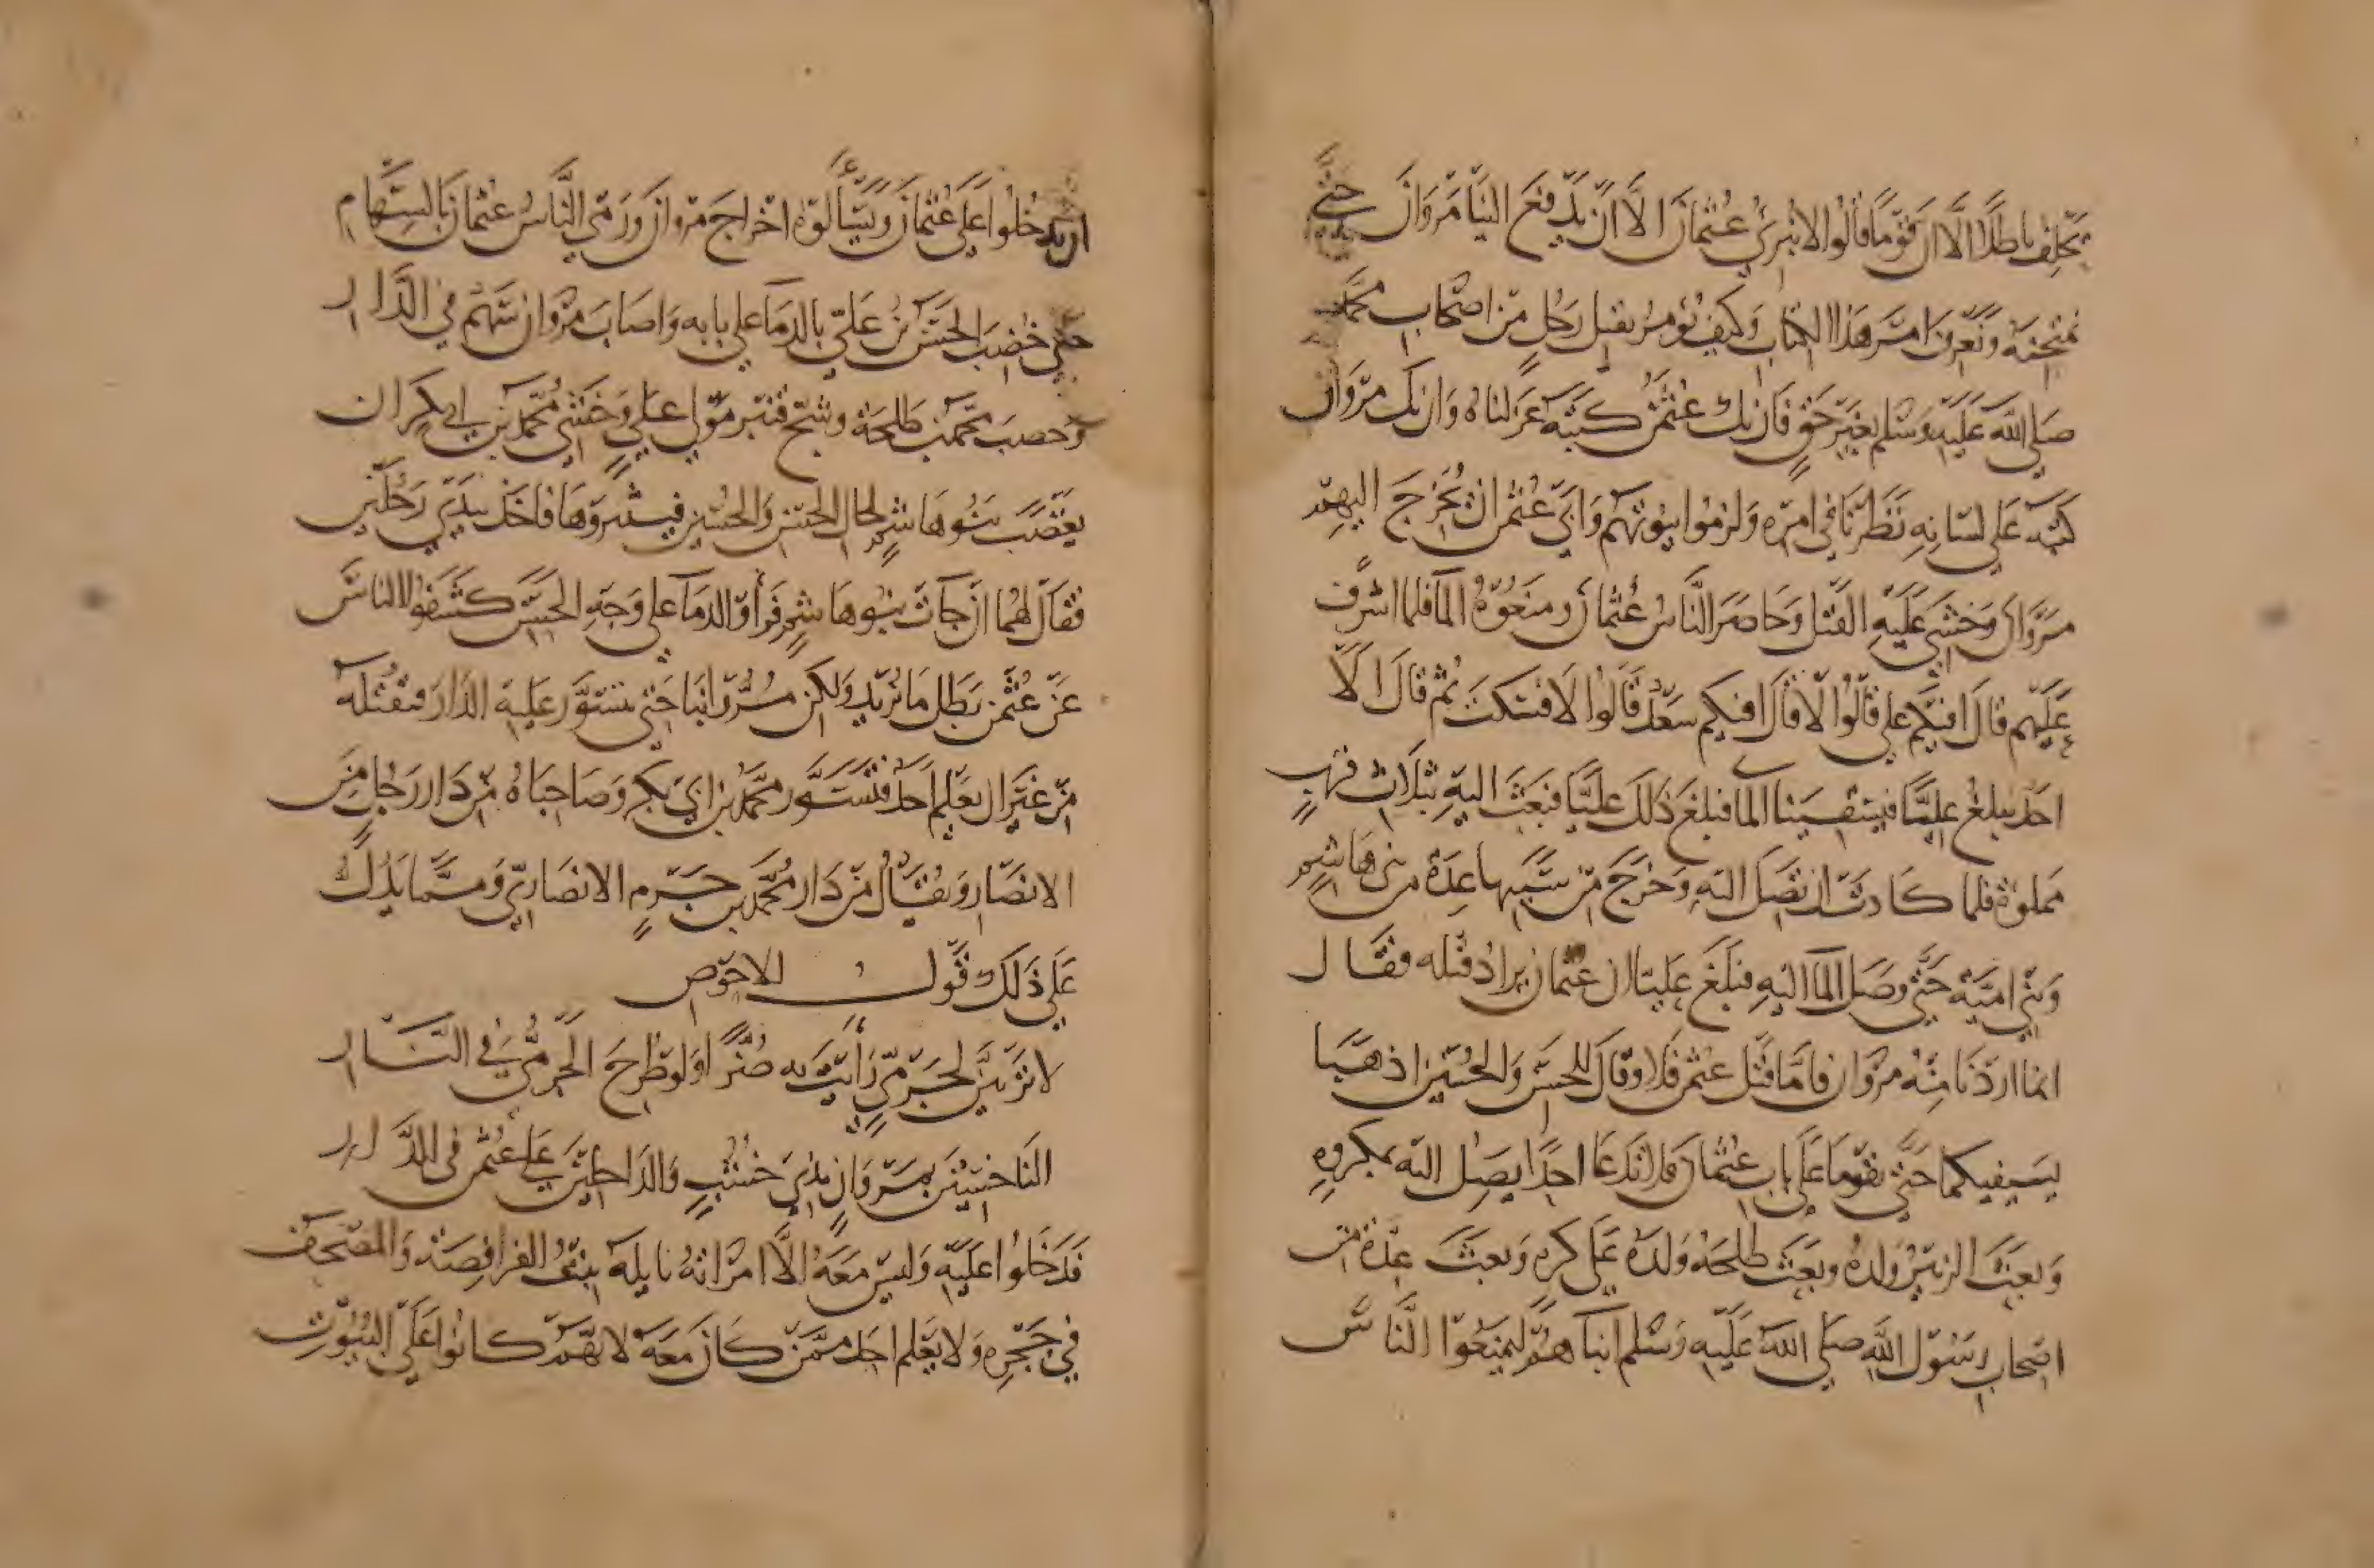 يحلف باطلا الا ان قوما قالوا لا نبري عثمان الا ان يدفع الينا مروان حتى
نمتحنه ونعرف امر هذا الكتاب وكيف يومر بقتل رجل من اصحاب محمد
صلى الله عليه وسلم بغير حق فان يك عثمن كتبه عزلناه وان يك مروان
كتبه على لسانه نظرنا في امره ولزموا بيوتهم وابى عثمن ان يخرج اليهم
مروان وخشي عليه القتل وحاصر الناس عثمان ومنعوه الما فلما اشرف
عليهم قال افيكم علي قالوا لا قال افيكم سعد قالوا لا فسكت ثم قال الا
احد يبلغ عليا فيسقينا الما فبلغ ذلك عليا فبعث اليه بثلاث قرب
مملوة فلما كادت ان تصل اليه وخرج من سببها عدة من بني هاشم
وبني امية حتى وصل الما اليه فبلغ عليا ان عثمان يراد قتله فقال
انما اردنا منه مروان فاما قتل عثمن فلا وقال للحسن والحسين اذهبا
بسيفيكما حتى تقوما على باب عثمان فلا تدعا احدا يصل اليه بمكروه
وبعث الزبير ولده وبعث طلحة ولده على كره وبعث عدة من
اصحاب رسول الله صلى الله عليه وسلم ابناهم ليمنعوا الناس
ان يدخلوا على عثمان ويسألوه اخراج مروان ورمى الناس عثمان بالسهام
حتى خضب الحسن بن علي بالدما على بابه واصاب مروان سهم في الدار
وخضب محمد بن طلحة وشج قنبر مولى علي وخشي محمد بن ابي بكر ان
يغضب بنو هاشم لحال الحسن والحسين فيثيروها فاخذ بيدي رجلين
فقال لهما ان جات بنو هاشم فرأوا الدما على وجه الحسن كشفوا الناس
عن عثمن بطل ما نريد ولكن مر وا بنا حتى نتسور عليه الدار فنقتله
من غير ان يعلم احد فتسور محمد بن ابي بكر وصاحباه من دار رجل من
الانصار ويقال من دار محمد بن حزم الانصاري ومما يدلك
على ذلك قول الاحوص
لا ترثين لحزمي رأيت به ضرا ولو طرح الحزمي في النار
الناخسين بمروان بذي خشب والداخلين على عثمن في الدار
فدخلوا عليه وليس معه الا امراته نايلة بنت الفرافصة والمصحف
في حجره ولا يعلم احد ممن كان معه لانهم كانوا على البيوت